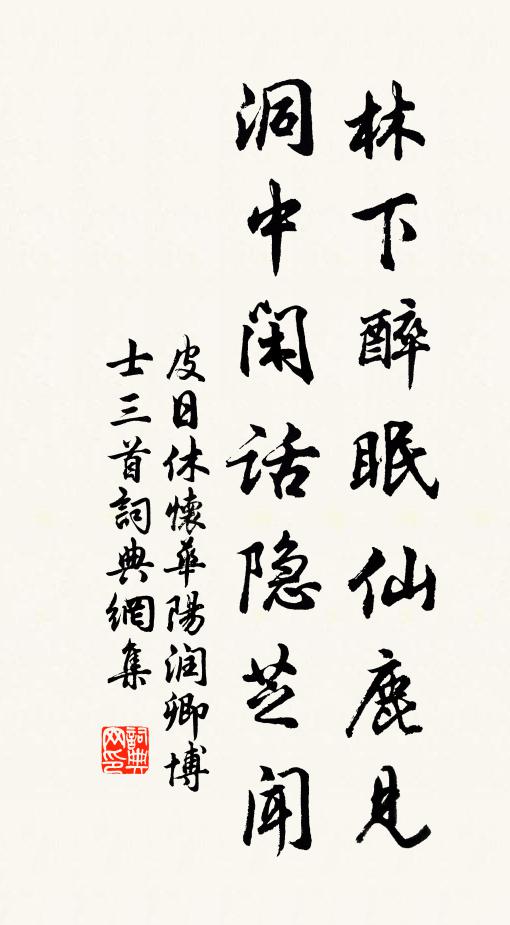 林下醉眠仙鹿见
洞中闲话隐芝闻
皮日休懷華陽润卿博
士三首詞典網集
詞典网印